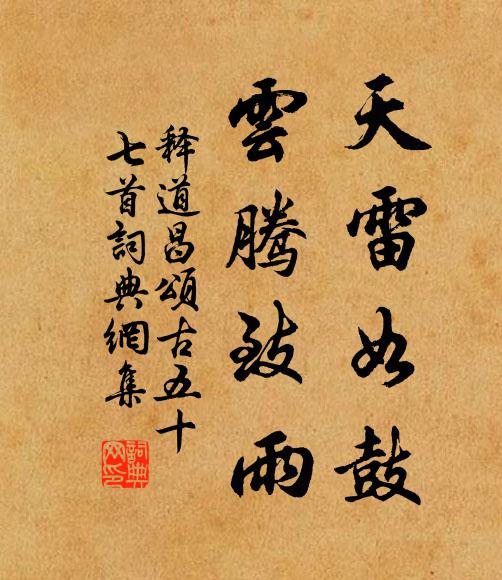 天雷如鼓
雲腾致雨
释道昌頌古五十
七首詞典網集
詞典网印